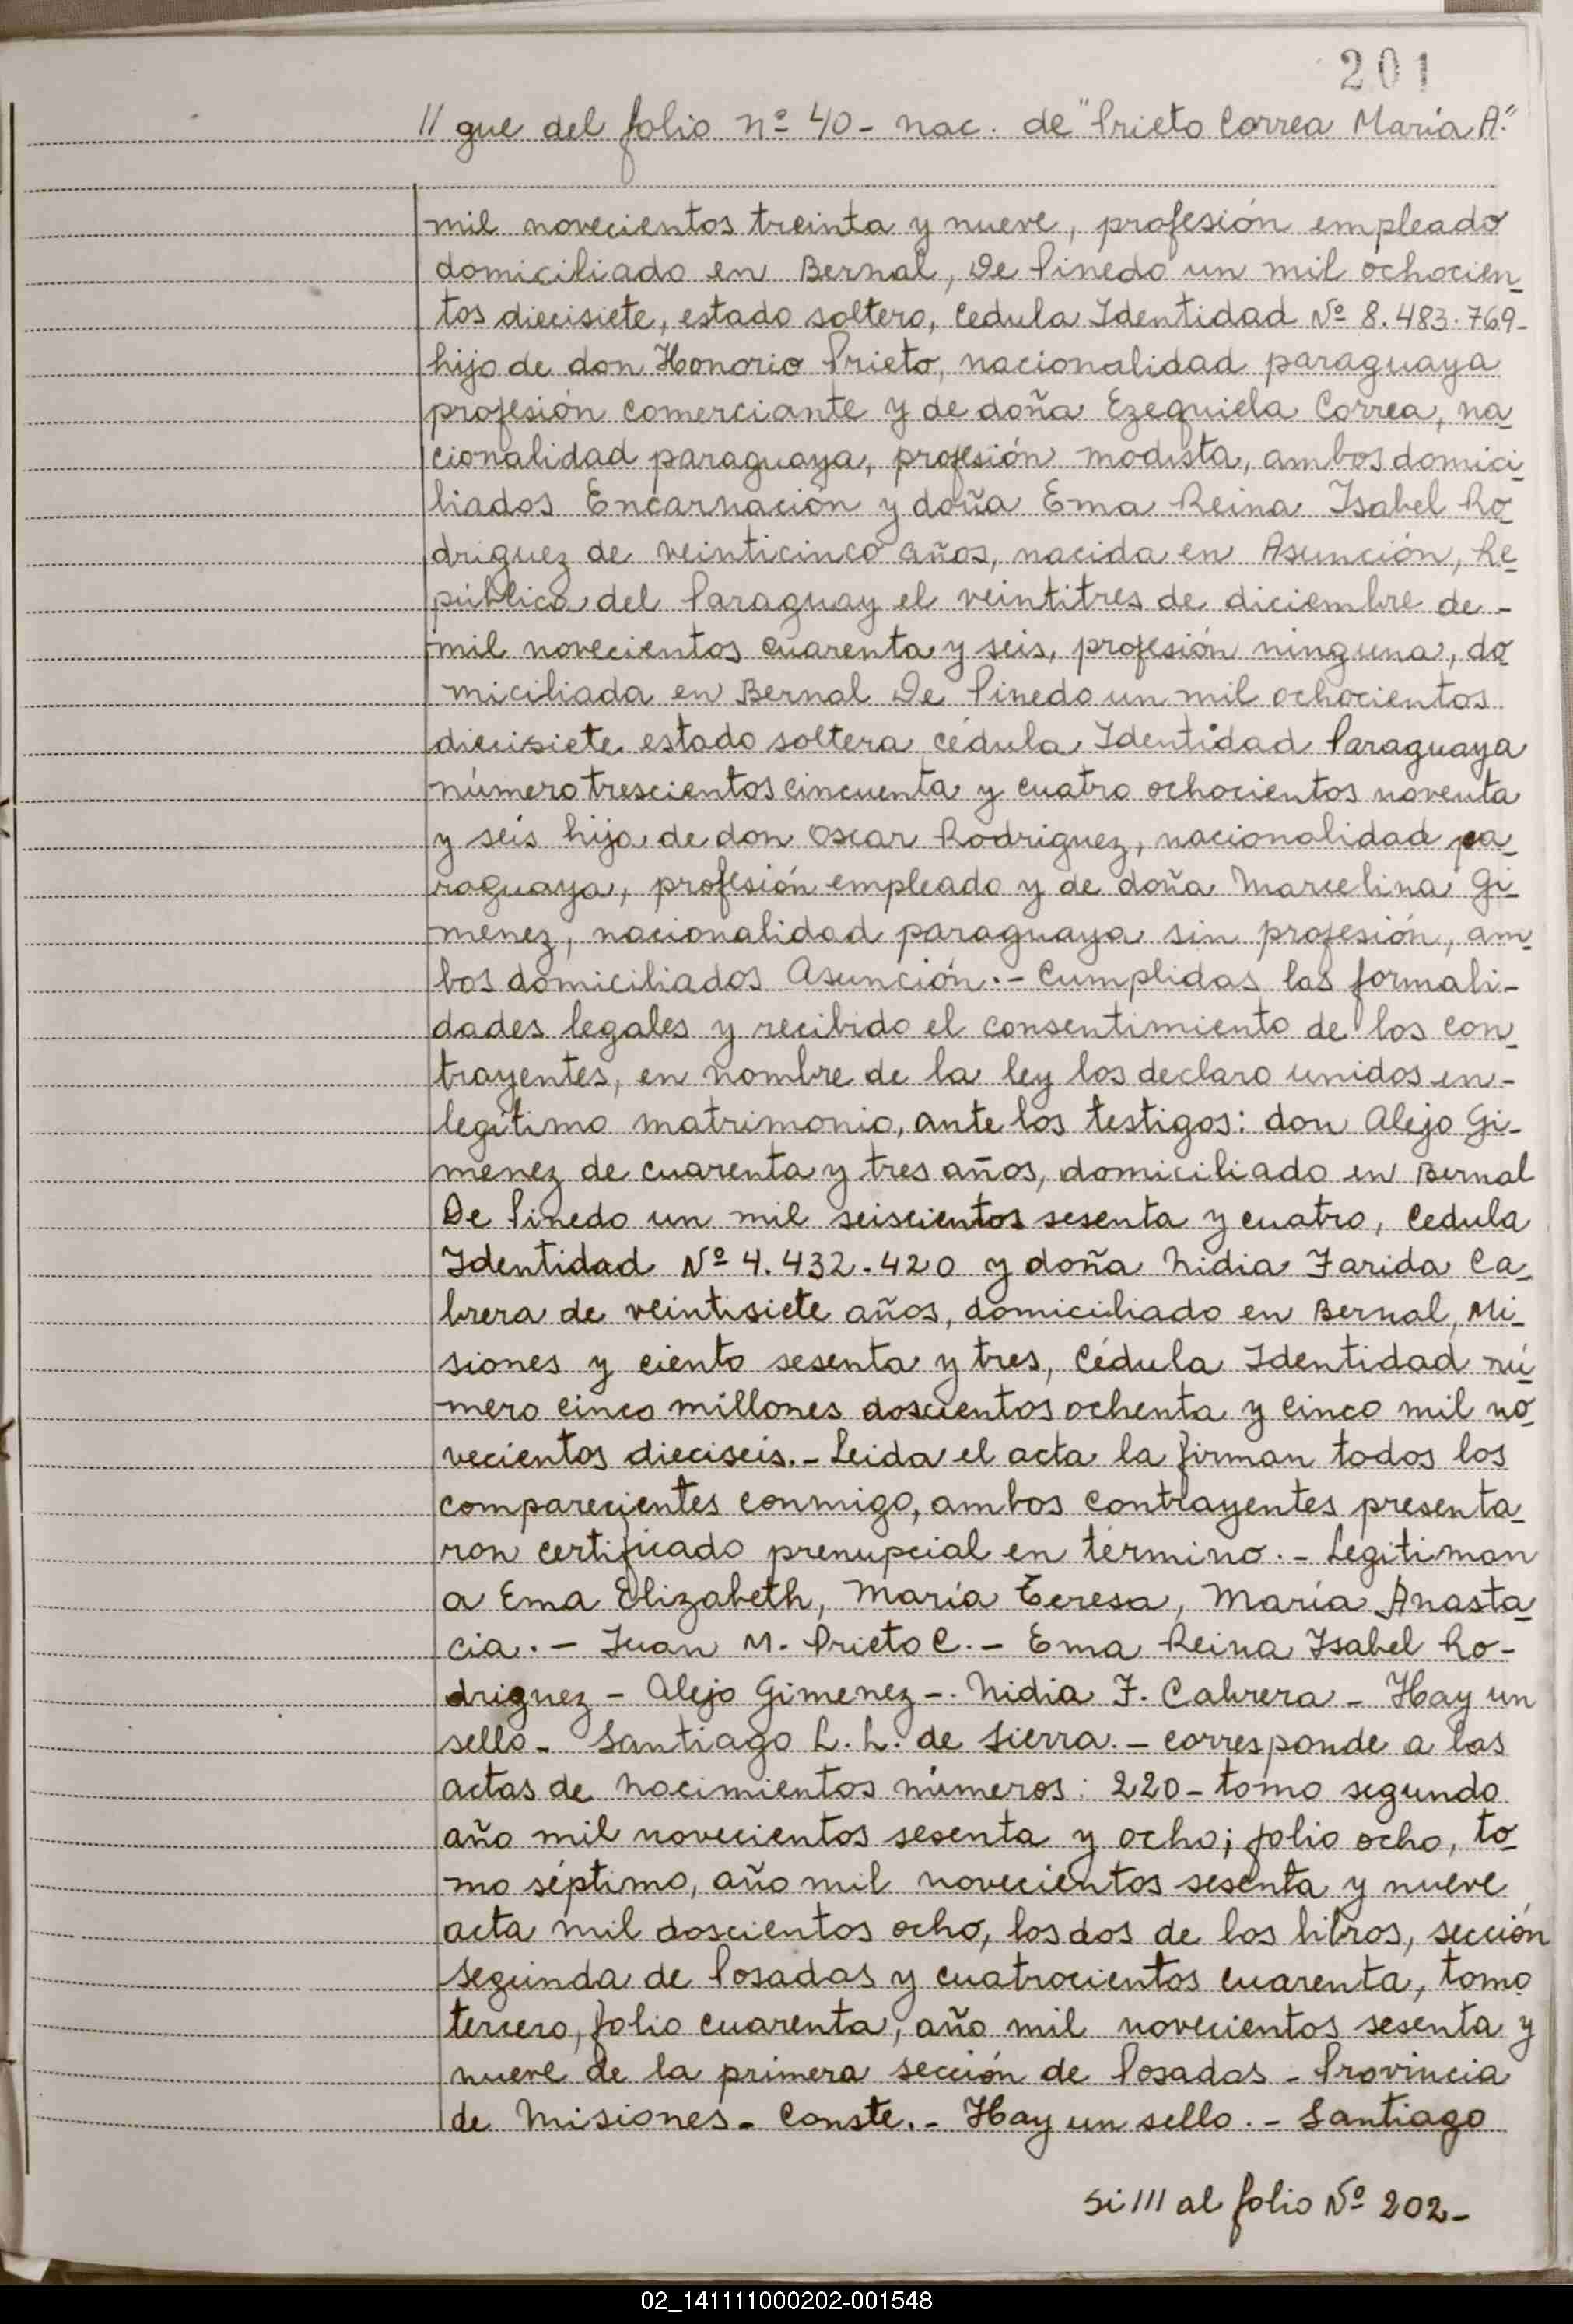 201
// gue del folio nº 40 - nac. de "Prieto Correa María A."
mil novecientos treinta y nueve, profesión empleado
domiciliado en Bernal, De Pinedo un mil ochocien-
tos diecisiete, estado soltero, Cedula Identidad Nº 8.483.769-
hijo de don Honorio Prieto, nacionalidad paraguaya
profesión comerciante y de doña Ezequiela Correa, na-
cionalidad paraguaya, profesión modista, ambos domici-
liados Encarnación y doña Ema Reina Isabel Ro-
driguez de veinticinco años, nacida en Asunción, Re-
pública del Paraguay el veintitres de diciembre de -
mil novecientos cuarenta y seis, profesión ninguna, do-
miciliada en Bernal De Pinedo un mil ochocientos
diecisiete estado soltera cédula Identidad Paraguaya
número trescientos cincuenta y cuatro ochocientos noventa
y seis hija de don Oscar Rodriguez, nacionalidad pa-
raguaya, profesión empleado y de doña Marcelina Gi-
menez, nacionalidad paraguaya sin profesión, am-
bos domiciliados Asunción.- Cumplidas las formali-
dades legales y recibido el consentimiento de los con-
trayentes, en nombre de la ley los declaro unidos en-
legítimo matrimonio, ante los testigos: don Alejo Gi-
menez de cuarenta y tres años, domiciliado en Bernal
De Pinedo un mil seiscientos sesenta y cuatro, Cedula
Identidad Nº 4.432.420 y doña Nidia Farida Ca-
brera de veintisiete años, domiciliado en Bernal, Mi-
siones y ciento sesenta y tres, Cédula Identidad nú-
mero cinco millones doscientos ochenta y cinco mil no-
vecientos dieciseis.- Leida el acta la firman todos los
comparecientes conmigo, ambos contrayentes presenta-
ron certificado prenupcial en término.- Legitiman
a Ema Elizabeth, María Teresa, María Anasta-
cia.- Juan M. Prieto C.- Ema Reina Isabel Ro-
driguez - Alejo Gimenez -. Nidia F. Cabrera - Hay un
sello- Santiago L. L. de Sierra.- corresponde a las
actas de nacimientos números: 220- tomo segundo
año mil novecientos sesenta y ocho; folio ocho, to-
mo séptimo, año mil novecientos sesenta y nueve
acta mil doscientos ocho, los dos de los libros, sección
segunda de Posadas y cuatrocientos cuarenta, tomo
tercero, folio cuarenta, año mil novecientos sesenta y
nueve de la primera sección de Posadas - Provincia
de Misiones- Conste.- Hay un sello.- Santiago
Si /// al folio Nº 202-
02_141111000202-001548